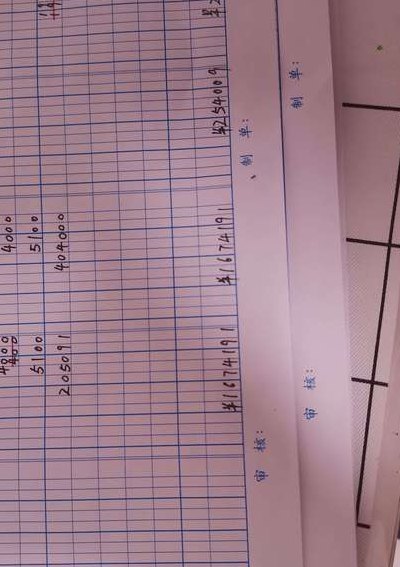 4000 4000
5100 5100
205091 404000
¥1674191 ¥1674191
审 核： 制 单：
审 核： 制 单：